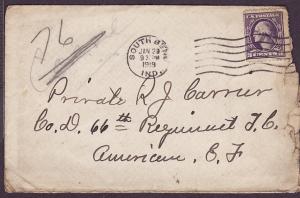 76
SOUTH BEND
JAN 29
1919
IND.
U.S. POSTAGE
3 CENTS 3
Private R J Carrier
Co. D. 66th Regiment T. C.
American. E. F